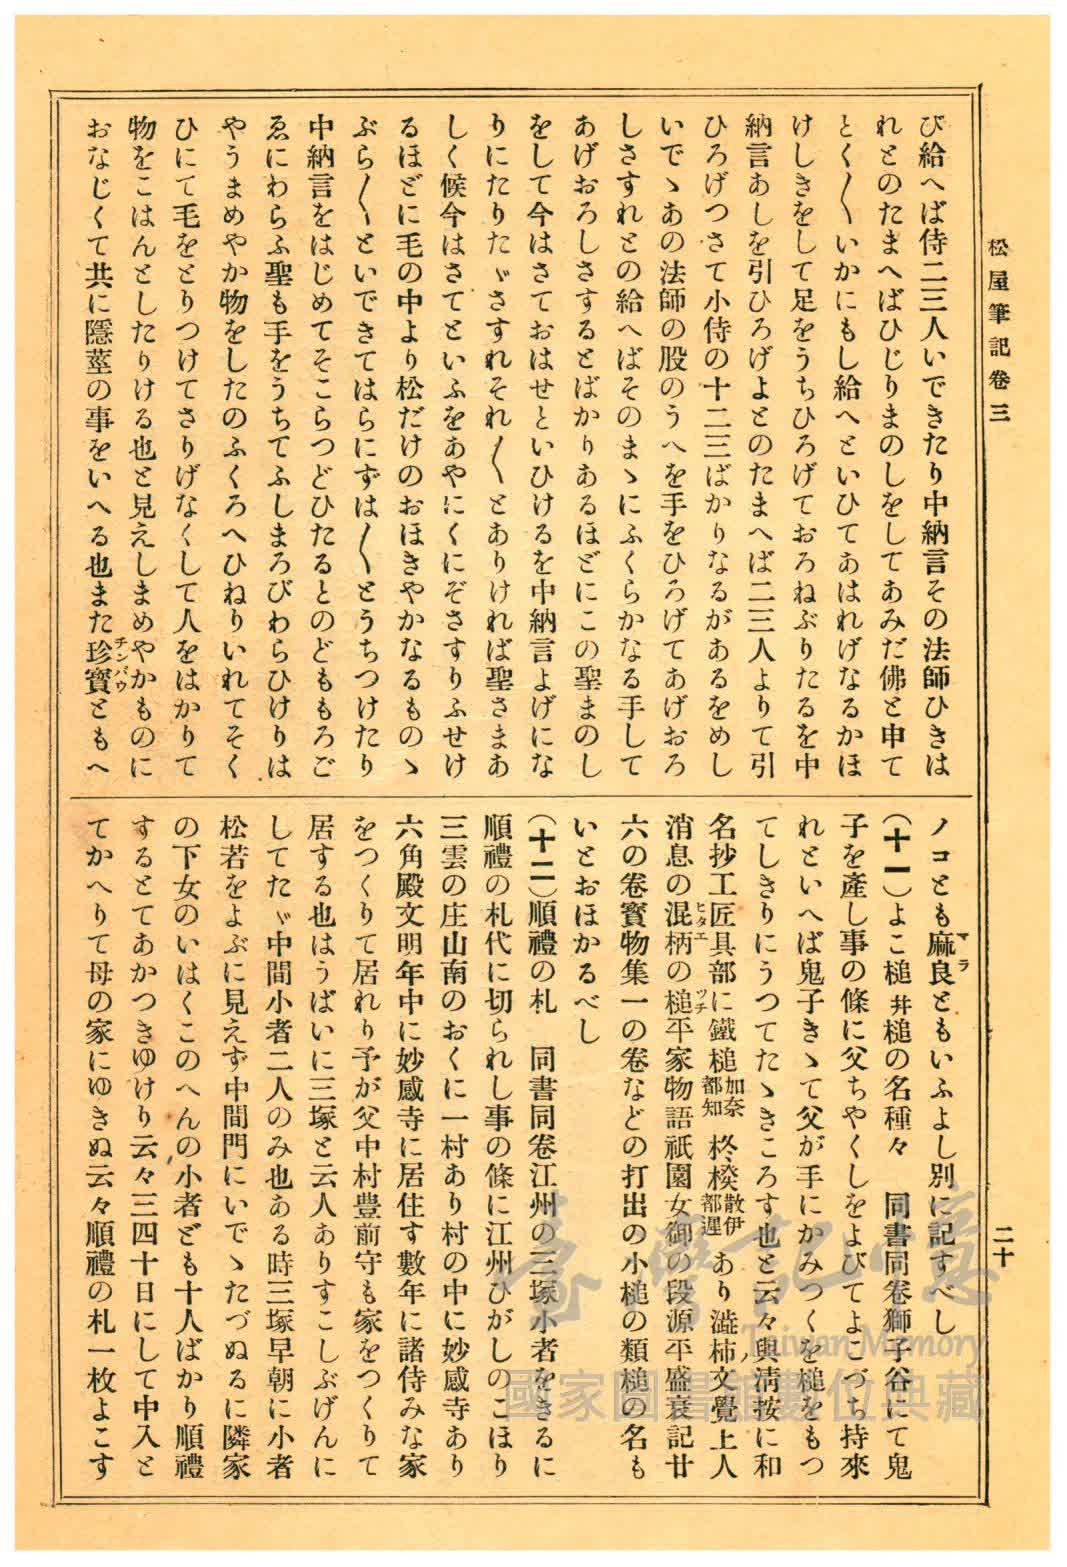 松屋筆記卷三
二十
び給へば侍二三人いできたり中納言その法師ひきは
れとのたまへばひじりまのしをしてあみだ佛と申て
とく〱いかにもし給へといひてあはれげなるかほ
けしきをして足をうちひろげておろねぶりたるを中
納言あしを引ひろげよとのたまへば二三人よりて引
ひろげつさて小侍の十二三ばかりなるがあるをめし
いでゝあの法師の股のうへを手をひろげてあげおろ
しさすれとの給へばそのまゝにふくらかなる手して
あげおろしさするとばかりあるほどにこの聖まのし
をして今はさておはせといひけるを中納言よげにな
りにたりたゞさすれそれ〱とありければ聖さまあ
しく候今はさてといふをあやにくにぞさすりふせけ
るほどに毛の中より松だけのおほきやかなるものゝ
ぶら〱といできてはらにずは〱とうちつけたり
中納言をはじめてそこらつどひたるとのどももろご
ゑにわらふ聖も手をうちてふしまろびわらひけりは
やうまめやか物をしたのふくろへひねりいれてそく
ひにて毛をとりつけてさりげなくして人をはかりて
物をこはんとしたりける也と見えしまめやかものに
おなじくて共に隱莖の事をいへる也また珍寳チンバウともへ
ノコとも麻良マラともいふよし別に記すべし
(十一)よこ槌井槌の名種々　同書同卷獅子谷にて鬼
子を產し事の條に父ちやくしをよびてよこづち持來
れといへば鬼子きゝて父が手にかみつくを槌をもつ
てしきりにうつてたゝきころす也と云々與淸按に和
名抄工匠具部に鐵槌加奈都知柊楑散伊都遲あり澁柿文覺上人
消息の混柄ヒタエの槌ツチ平家物語祇園女御の段源平盛衰記廿
六の卷寳物集一の卷などの打出の小槌の類槌の名も
いとおほかるべし
(十二)順禮の札　同書同卷江州の三塚小者をきるに
順禮の札代に切られし事の條に江州ひがしのこほり
三雲の庄山南のおくに一村あり村の中に妙感寺あり
六角殿文明年中に妙感寺に居住す數年に諸侍みな家
をつくりて居れり予が父中村豊前守も家をつくりて
居する也はうばいに三塚と云人ありすこしぶげんに
してたゞ中間小者二人のみ也ある時三塚早朝に小者
松若をよぶに見えず中間門にいでゝたづぬるに隣家
の下女のいはくこのへんの小者ども十人ばかり順禮
するとてあかつきゆけり云々三四十日にして中入と
てかへりて母の家にゆきぬ云々順禮の札一枚よこす
臺灣記憶
Taiwan Memory
國家圖書館數位典藏